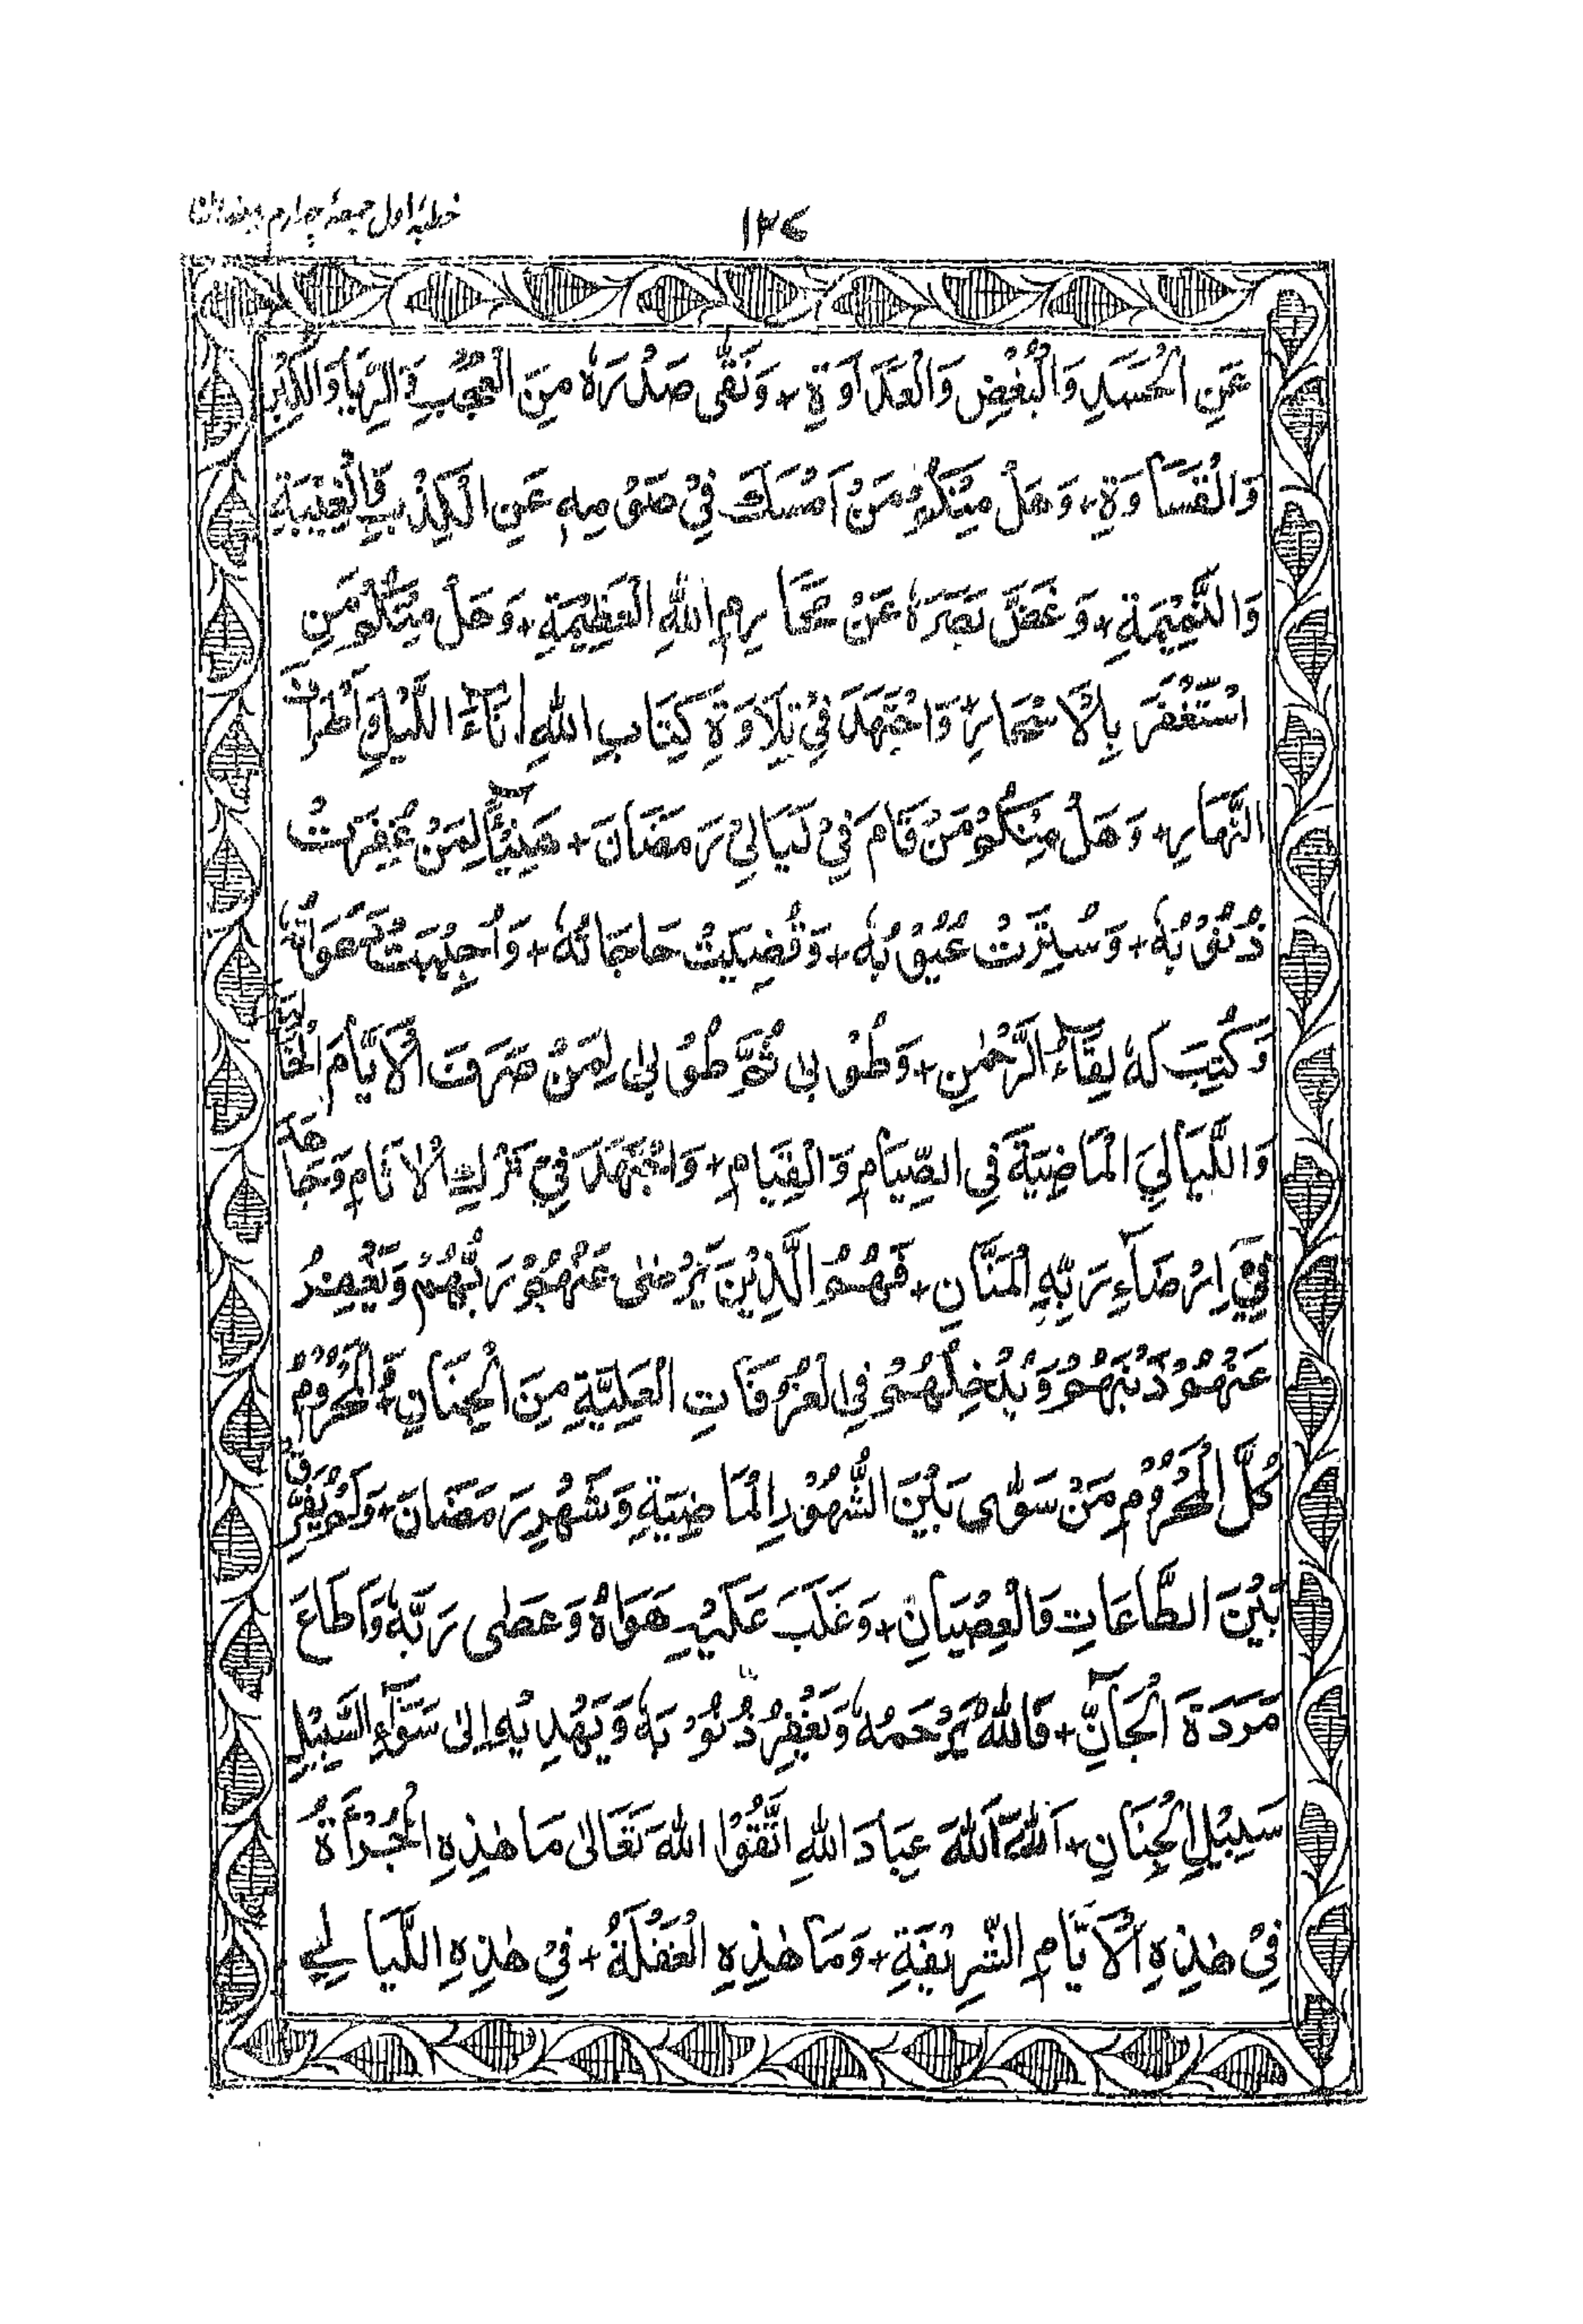 ١٣٤
خطبۂ اول جمعۂ چہارم رمضان
عَنِ الْحَسَدِ وَالْبُغْضِ وَالْعَدَاوَةِ + وَنَقّٰى صَدْرَهٗ مِنَ الْعُجْبِ وَالرِّيَا وَالْكِبْرِ
وَالْقَسَاوَةِ + وَهَلْ مِنْكُمْ مَنْ اَمْسَكَ فِيْ صَوْمِهٖ عَنِ الْكِذْبِ وَالْغِيْبَةِ
وَالنَّمِيْمَةِ + وَغَضَّ بَصَرَهٗ عَنْ مَحَارِمِ اللّٰهِ الْعَظِيْمَةِ + وَهَلْ مِنْكُمْ مَنِ
اسْتَغْفَرَ بِالْاَسْحَارِ + وَاجْتَهَدَ فِيْ تِلَاوَةِ كِتَابِ اللّٰهِ اٰنَاءَ اللَّيْلِ وَاَطْرَافَ
النَّهَارِ + وَهَلْ مِنْكُمْ مَنْ قَامَ فِيْ لَيَالِيْ رَمَضَانَ + هَنِيْٓئًا لِمَنْ غُفِرَتْ
ذُنُوْبُهٗ + وَسُتِرَتْ عُيُوْبُهٗ + وَقُضِيَتْ حَاجَاتُهٗ + وَاُجِيْبَتْ دَعَوَاتُهٗ
وَكُتِبَ لَهٗ لِقَآءُ الرَّحْمٰنِ + وَطُوْبٰى ثُمَّ طُوْبٰى لِمَنْ صَرَفَ الْاَيَّامَ الْخَالِيَةَ
وَاللَّيَالِيَ الْمَاضِيَةَ فِي الصِّيَامِ وَالْقِيَامِ + وَاجْتَهَدَ فِيْ تَرْكِ الْاٰثَامِ وَجَاهَدَ
فِيْٓ اِرْضَآءِ رَبِّهِ الْمَنَّانِ + فَهُمُ الَّذِيْنَ يَرْضٰى عَنْهُمْ رَبُّهُمْ وَيَغْفِرُ
عَنْهُمْ ذَنْبَهُمْ وَيُدْخِلُهُمْ فِي الْغُرُفَاتِ الْعَلِيَّةِ مِنَ الْجِنَانِ + وَالْمَحْرُوْمُ
كُلُّ الْمَحْرُوْمِ مَنْ سَوّٰى بَيْنَ الشُّهُوْرِ الْمَاضِيَةِ وَشَهْرِ رَمَضَانَ + وَلَمْ يُفَرِّقْ
بَيْنَ الطَّاعَاتِ وَالْعِصْيَانِ + وَغَلَبَ عَلَيْهِ هَوَاهُ وَعَصٰى رَبَّهٗ وَاَطَاعَ
مَرَدَةَ الْجَآنِّ + فَاللّٰهُ يَرْحَمُهٗ وَيَغْفِرُ ذُنُوْبَهٗ وَيَهْدِيْهِ اِلٰى سَوَآءِ السَّبِيْلِ
سَبِيْلِ الْجِنَانِ + اَللّٰهَ اَللّٰهَ عِبَادَ اللّٰهِ اتَّقُوْا اللّٰهَ تَعَالٰى مَا هٰذِهِ الْجُرْأَةُ
فِيْ هٰذِهِ الْاَيَّامِ الشَّرِيْفَةِ + وَمَا هٰذِهِ الْغَفْلَةُ + فِيْ هٰذِهِ اللَّيَالِيْ